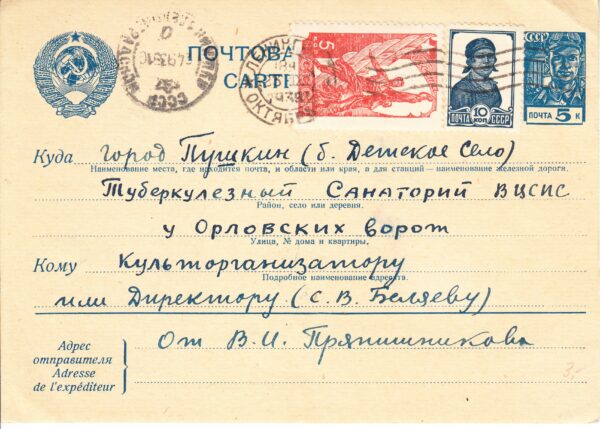 ПОЧТОВА
CARTE
СССР
5
10 КОП.
ПОЧТА СССР
СССР
ПОЧТА 5 К
ЛЕНИНГРАД
ОКТЯБР
Куда город Пушкин (б. Детское Село)
Наименование места, где находится почта, и области или края, а для станций — наименование железной дороги.
Туберкулезный Санаторий ВЦСПС
Район, село или деревня.
у Орловских ворот
Улица, № дома и квартиры,
Кому Культорганизатору
Подробное наименование адресата.
или Директору (С. В. Беляеву)
Адрес
отправителя
Adresse
de l'expéditeur
От В. И. Прянишникова
3,-